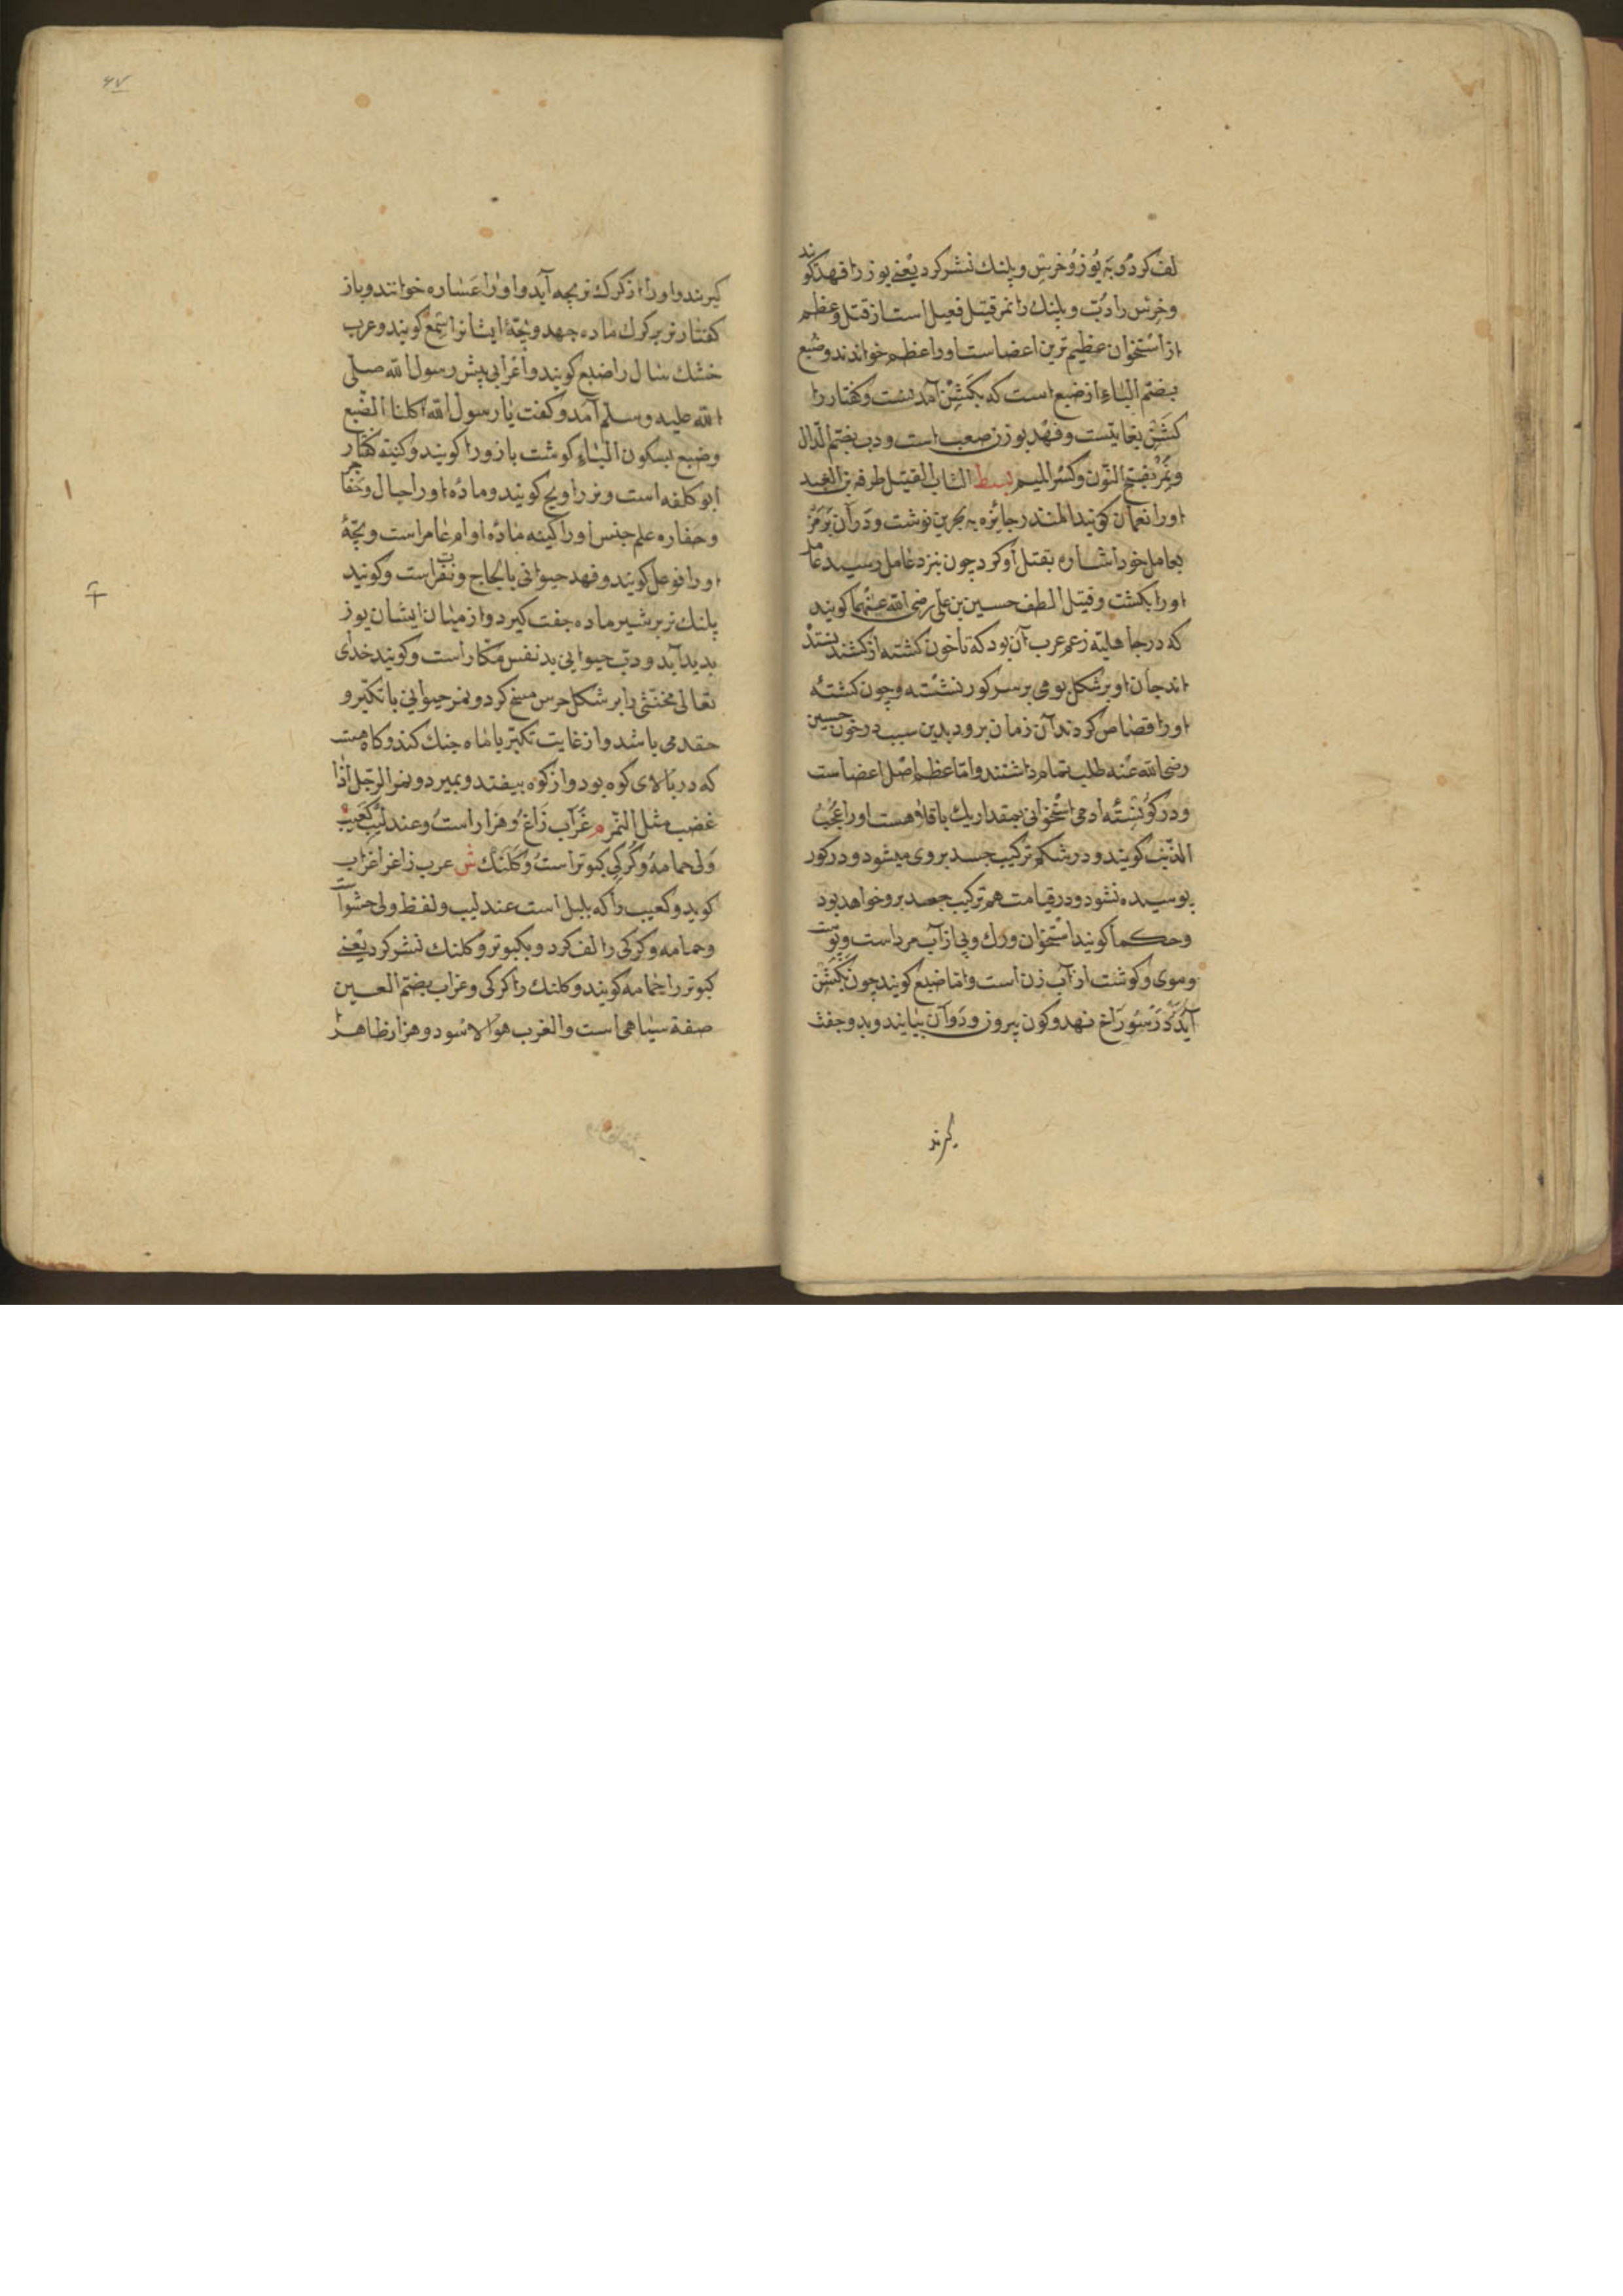 لف کرد و به یوز و خرس و پلنك نشر کرد یعنے یوز را فهد کویند
و خرس را دبّ و پلنك را نمر قتیل فعیل است از قتل و عظم
از استخوان عظیم ترین اعضاست او را عظم خوانند و ضبع
بضمّ الباء از ضبع است که بکشن آمدنست و کفتار را
کشنی بغایتست و فهد یوز زن صعب است و دب بضمّ الدّال
و نمر بفتح النّون و کسر المیم بسط الشاب القتیل طرفة بن العبد
او را نعمان کویند المنذر جائزه به بحرین نوشت و در آن برمز
بعامل خود اشاره بقتل او کرد چون بنزد عامل رسید عامل
او را بکشت و قتیل الطف حسین بن علی رضی الله عنهما کویند
که در جاهلیّه زعم عرب آن بود که تا خون کشته از کشنده نستد
اند جان او بر شکل بومی بر سر کور نشسته و چون کشنده
او را قصاص کردند آن زمان برود بدین سبب در خون حسین
رضی الله عنه طلب تمام داشتند و امّا عظم اصل اعضاست
و در کون نشسته ادمی استخوانی بمقدار یك باقلا هست او را عجب
الذنب کویند و در شکم ترکیب جسد بر وی میشود و در کور
پوسیده نشود و در قیامت هم ترکیب جسد برو خواهد بود
و حکما کویند استخوان و رك و پی از آب مرداست و پوست
و موی و کوشت از آب زن است و امّا ضبع کویند چون بکشن
آید که در سوراخ نهد و کون بیروز و ددان بیایند و بدو جفت
کیرند
۶۷
کیرند و او را از کرك نر بچه آید و او را عسباره خوانند و باز
کفتار نر بر کرك ماده جهد و بچّهٔ ایشانرا سمع کویند و عرب
خشك سال را ضبع کویند و اعرابی پیش رسول الله صلّی
الله علیه و سلّم آمد و کفت یا رسول الله اکلنا الضّبع
و ضبع بسکون الباء کوشت بازو را کویند و کنیتهٔ کفتار
ابو کلفه است و نر را ویج کویند و مادهٔ او را جیال و
و حفاره علم جنس او را کنیه مادهٔ او ام عامر است و بچّهٔ
او را فوعل کویند و فهد حیوانی با لجاج و نفرتست و کویند
پلنك نر بر شیر ماده جفت کیرد و از میان ایشان یوز
بدید آید و دبّ حیوانی بد نفس مکّار است و کویند خدای
تعالی مخنّثی را بر شکل خرس مسخ کرد و نمر حیوانی با تکبّر و
حقد می باشد و از غایت تکبّر با ماه جنك کند و کاه هست
که در بالای کوه بود و از کوه بیفتد و بمیرد و نمر الرّجل اذا
غضب مثل النّمر م غراب زاغ و هزار است و عندلیب کعیب
ولی حمامه و کرکی کبوتر است و کلنك ش عرب زاغ را غراب
کوید و کعیب را که بلبل است عندلیب و لفظ ولی حشو است
و حمامه و کرکی را لف کرد و بکبوتر و کلنك نشر کرد یعنے
کبوتر را حمامه کویند و کلنك را کرکی و غراب بضمّ العین
صفة سیاهی است و الغرب هو الاسود و هزار ظاهرا